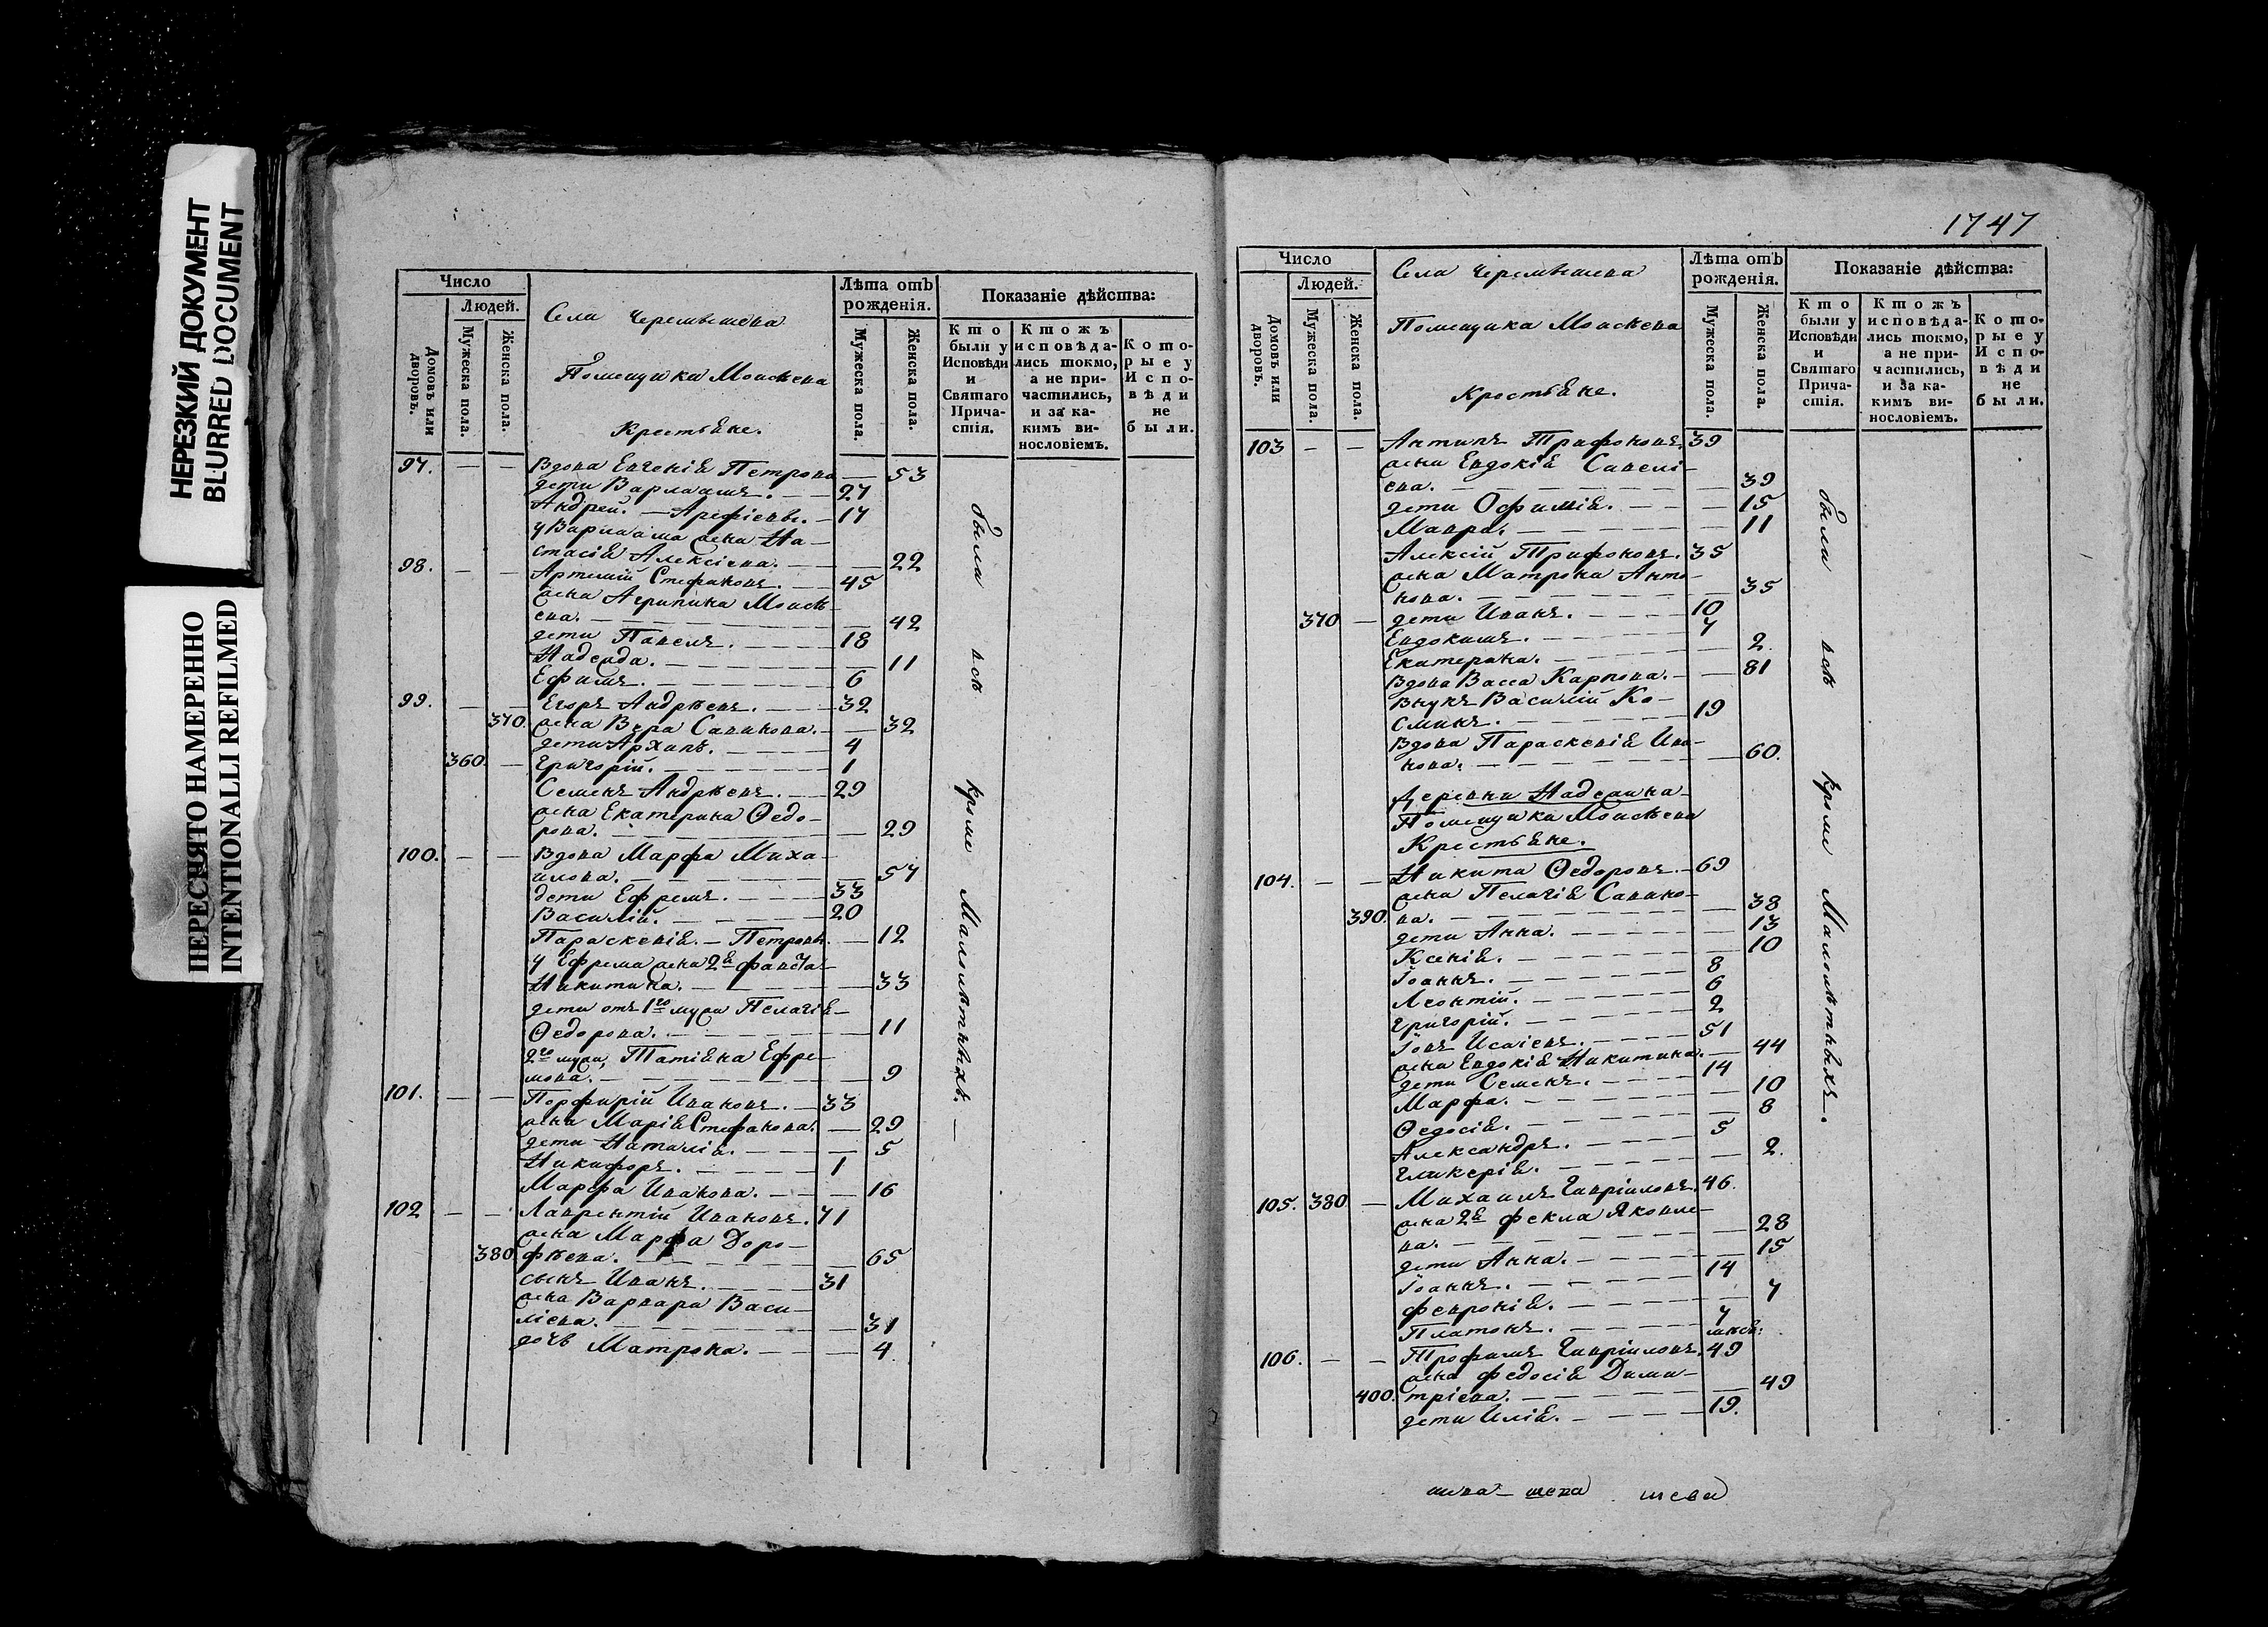 НЕРЕЗКИЙ ДОКУМЕНТ
BLURRED DOCUMENT
ПЕРЕСНЯТО НАМЕРЕННО
INTENTIONALLI REFILMED
Число
Людей.
Домовъ или дворовъ.
Мужеска пола.
Женска пола.
Села Черемышева
Помещика Моисѣева
Крестьяне.
Лѣта отъ рожденія.
Мужеска пола.
Женска пола.
Показаніе дѣйства:
Кто были у Исповѣди и Святаго Причастія.
Ктожъ исповѣдались токмо, а не причастились, и за какимъ винословіемъ.
Которые у Исповѣди не были.
97. — — Вдова Евгенія Петрова — 53
дети Варлаамъ. — — 27
Андрей. — Арефіевы. — 17
у Варлаама жена На-
стасія Алексіева. — — 22
98. — — Артемій Стефановъ. — 45
жена Агрипина Моисѣ-
ева. — 42
дети Павелъ. — 18
Надежда. — 11
Ефимъ. — 6
99. — Егоръ Андрѣевъ. — 32
370. жена Вѣра Савинова. — 32
дети Архипъ. — 4
360. — Григорій. — 1
Семенъ Андрѣевъ. — 29
жена Екатерина Ѳедо-
рова. — 29
100. — — Вдова Марфа Миха-
илова. — 57
дети Ефремъ. — 33
Василій. — 20
Параскевія. — Петровы. — 12
у Ефрема жена 2я
Никитина. — 33
дети отъ 1го мужа Пелагія
Ѳедорова. — 11
2го мужа, Татіяна Ефре-
мова. — 9
101. — — Порфирій Ивановъ. — 33
жена Марія Стефанова. — 29
дети Наталія. — 5
Никифоръ. — 1
Марфа Иванова. — 16
102 — — Лаврентій Ивановъ. 71
жена Марфа Доро-
380. фѣева. — 65
сынъ Иванъ. — 31
жена Варвара Васи-
ліева. — 31
дочь Матрона. — 4
были всѣ кромѣ Малолѣтныхъ. —
1747
Число
Людей.
Домовъ или дворовъ.
Мужеска пола.
Женска пола.
Села Черемышева
Помещика Моисѣева
Крестьяне.
Лѣта отъ рожденія.
Мужеска пола.
Женска пола.
Показаніе дѣйства:
Кто были у Исповѣди и Святаго Причастія.
Ктожъ исповѣдались токмо, а не причастились, и за какимъ винословіемъ.
Которые у Исповѣди не были.
103 — — Антипъ Трифоновъ. 39
жена Евдокія Савелі-
ева. — 39
дети Офимія. — 15
Мавра. — 11
Алексій Трифоновъ. 35
жена Матрона Анто-
нова. — 35
370 — дети Иванъ. — 10
Евдокимъ. — 7
Екатерина. — 2.
Вдова Васса Карпова. — 81
Внукъ Василій Ко-
сминъ. — 19
Вдова Параскевія Ива-
нова. — 60.
Деревни Надеждина
Помещика Моисѣева
Крестьяне.
104. — — Никита Ѳедоровъ. — 69
жена Пелагія Савино-
390. ва. — 38
дети Анна. — 13
Ксенія. — 10
Іоаннъ. — 8
Леонтій. — 6
Григорій. — 2
Іовъ Исаіевъ. — 51
жена Евдокія Никитина. — 44
дети Семенъ. — 14
Марфа. — 10
Ѳедосія. — 8
Александръ. — 5
Гликерія. — 2.
105. 380 — Михаилъ Гавріиловъ. 46.
жена 2я Фекла Яковле-
ва. — 28
дети Анна. — 15
Іоаннъ. — 14
Февронія. — 7
Платонъ. — 7 мѣся:
106. — — Трофимъ Гавріиловъ. 49
жена Федосія Дими-
400. тріева. — 49
дети Илія. — 19.
были всѣ кромѣ Малолѣтныхъ.
шева — шева шева